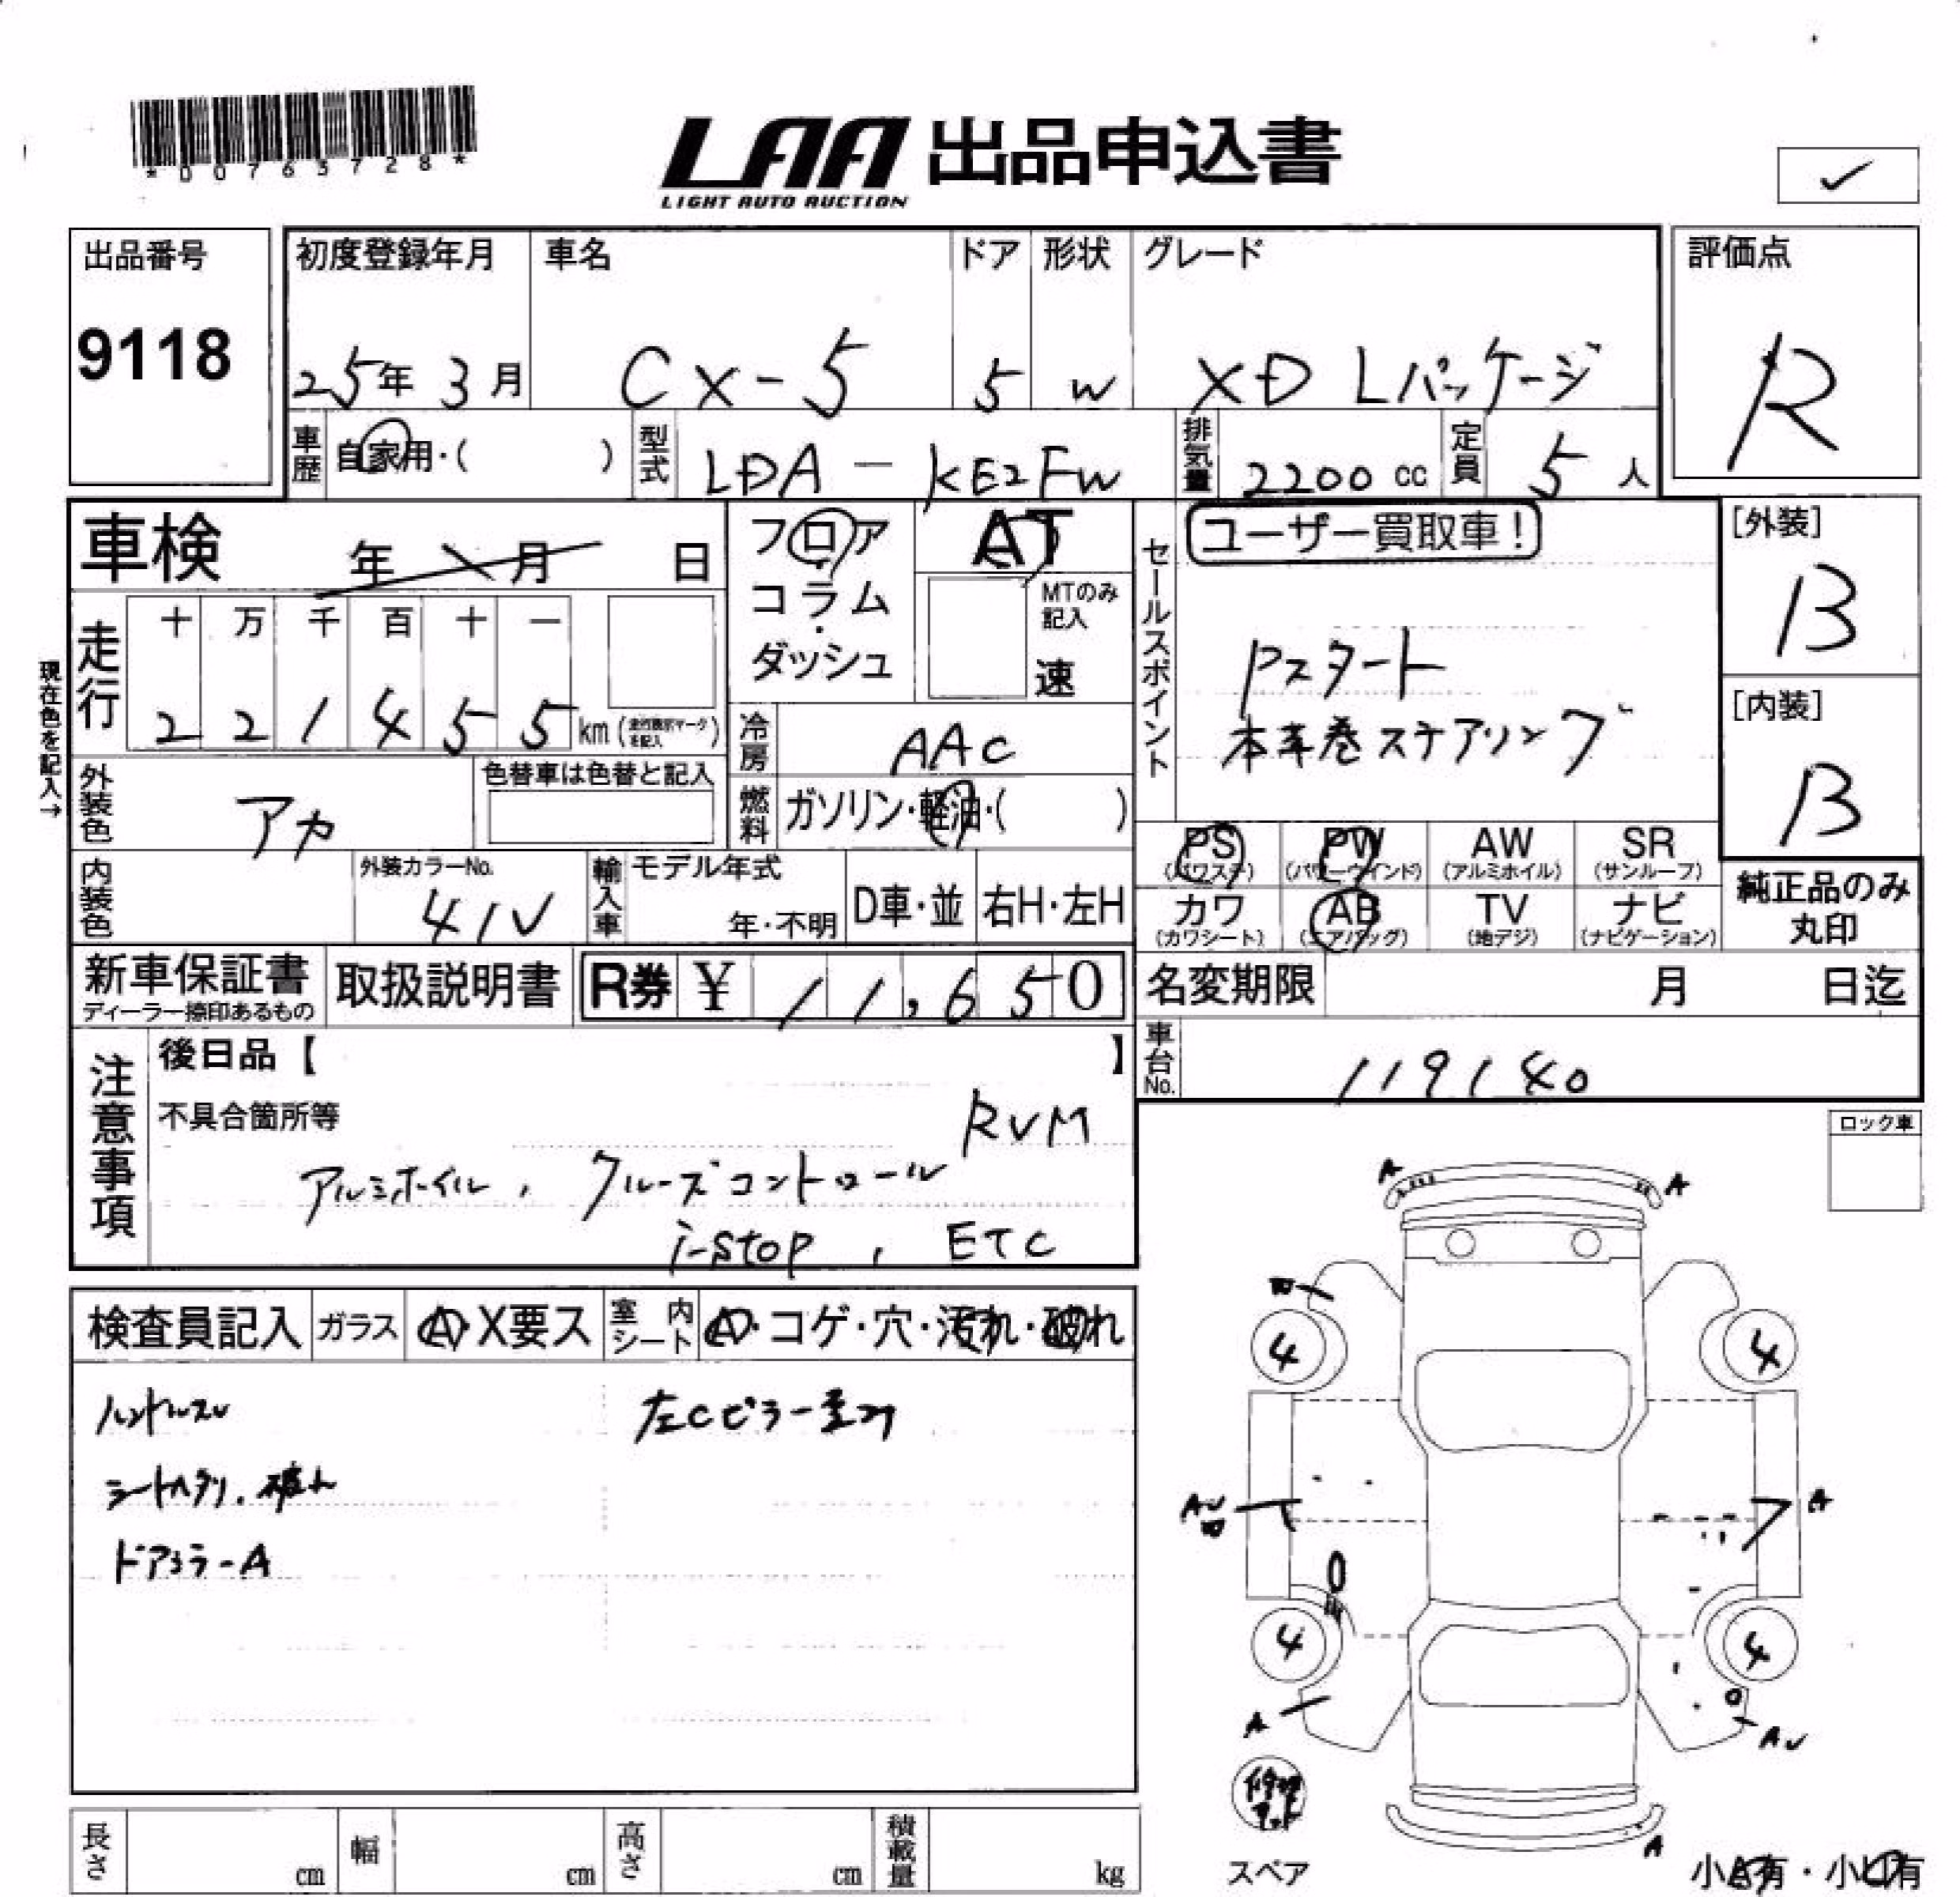 *00763728*
LAA 出品申込書
LIGHT AUTO AUCTION
✓
出品番号
9118
初度登録年月
25年 3月
車名
CX-5
ドア
5
形状
W
グレード
XD Lパッケージ
評価点
R
車歴
自家用・( )
型式
LDA - KE2FW
排気量
2200 cc
定員
5 人
車検 年 月 日
フロア・コラム・ダッシュ
AT
MTのみ記入
速
セールスポイント
ユーザー買取車!
Pスタート
本革巻ステアリング
[外装]
B
[内装]
B
現在色を記入→
走行
十 万 千 百 十 一
2 2 1 4 5 5 km
冷房
AAC
外装色
アカ
色替車は色替と記入
燃料
ガソリン・軽油・( )
PS AW SR
(パワステ) (パワーウインド) (アルミホイル) (サンルーフ)
PW
カワ AB TV ナビ
(カワシート) (エアバッグ) (地デジ) (ナビゲーション)
純正品のみ
丸印
内装色
外装カラーNo.
41V
輸入車
モデル年式
年・不明
D車・並
右H・左H
新車保証書
ディーラー捺印あるもの
取扱説明書
R券 ¥ 11,650
名変期限 月 日迄
車台No.
119140
注意事項
後日品【 】
不具合箇所等
RVM
アルミホイル, クルーズコントロール
i-stop, ETC
ロック車
検査員記入
ガラス
A・X要ス
室内シート
A・コゲ・穴・汚れ・破れ
ハンドルスレ
シートヘタリ、破れ
ドアミラーA
左Cピラー歪み
A A
4 4
A
4 4
A
A
スペア
小A有・小U有
長さ cm
幅 cm
高さ cm
積載量 kg